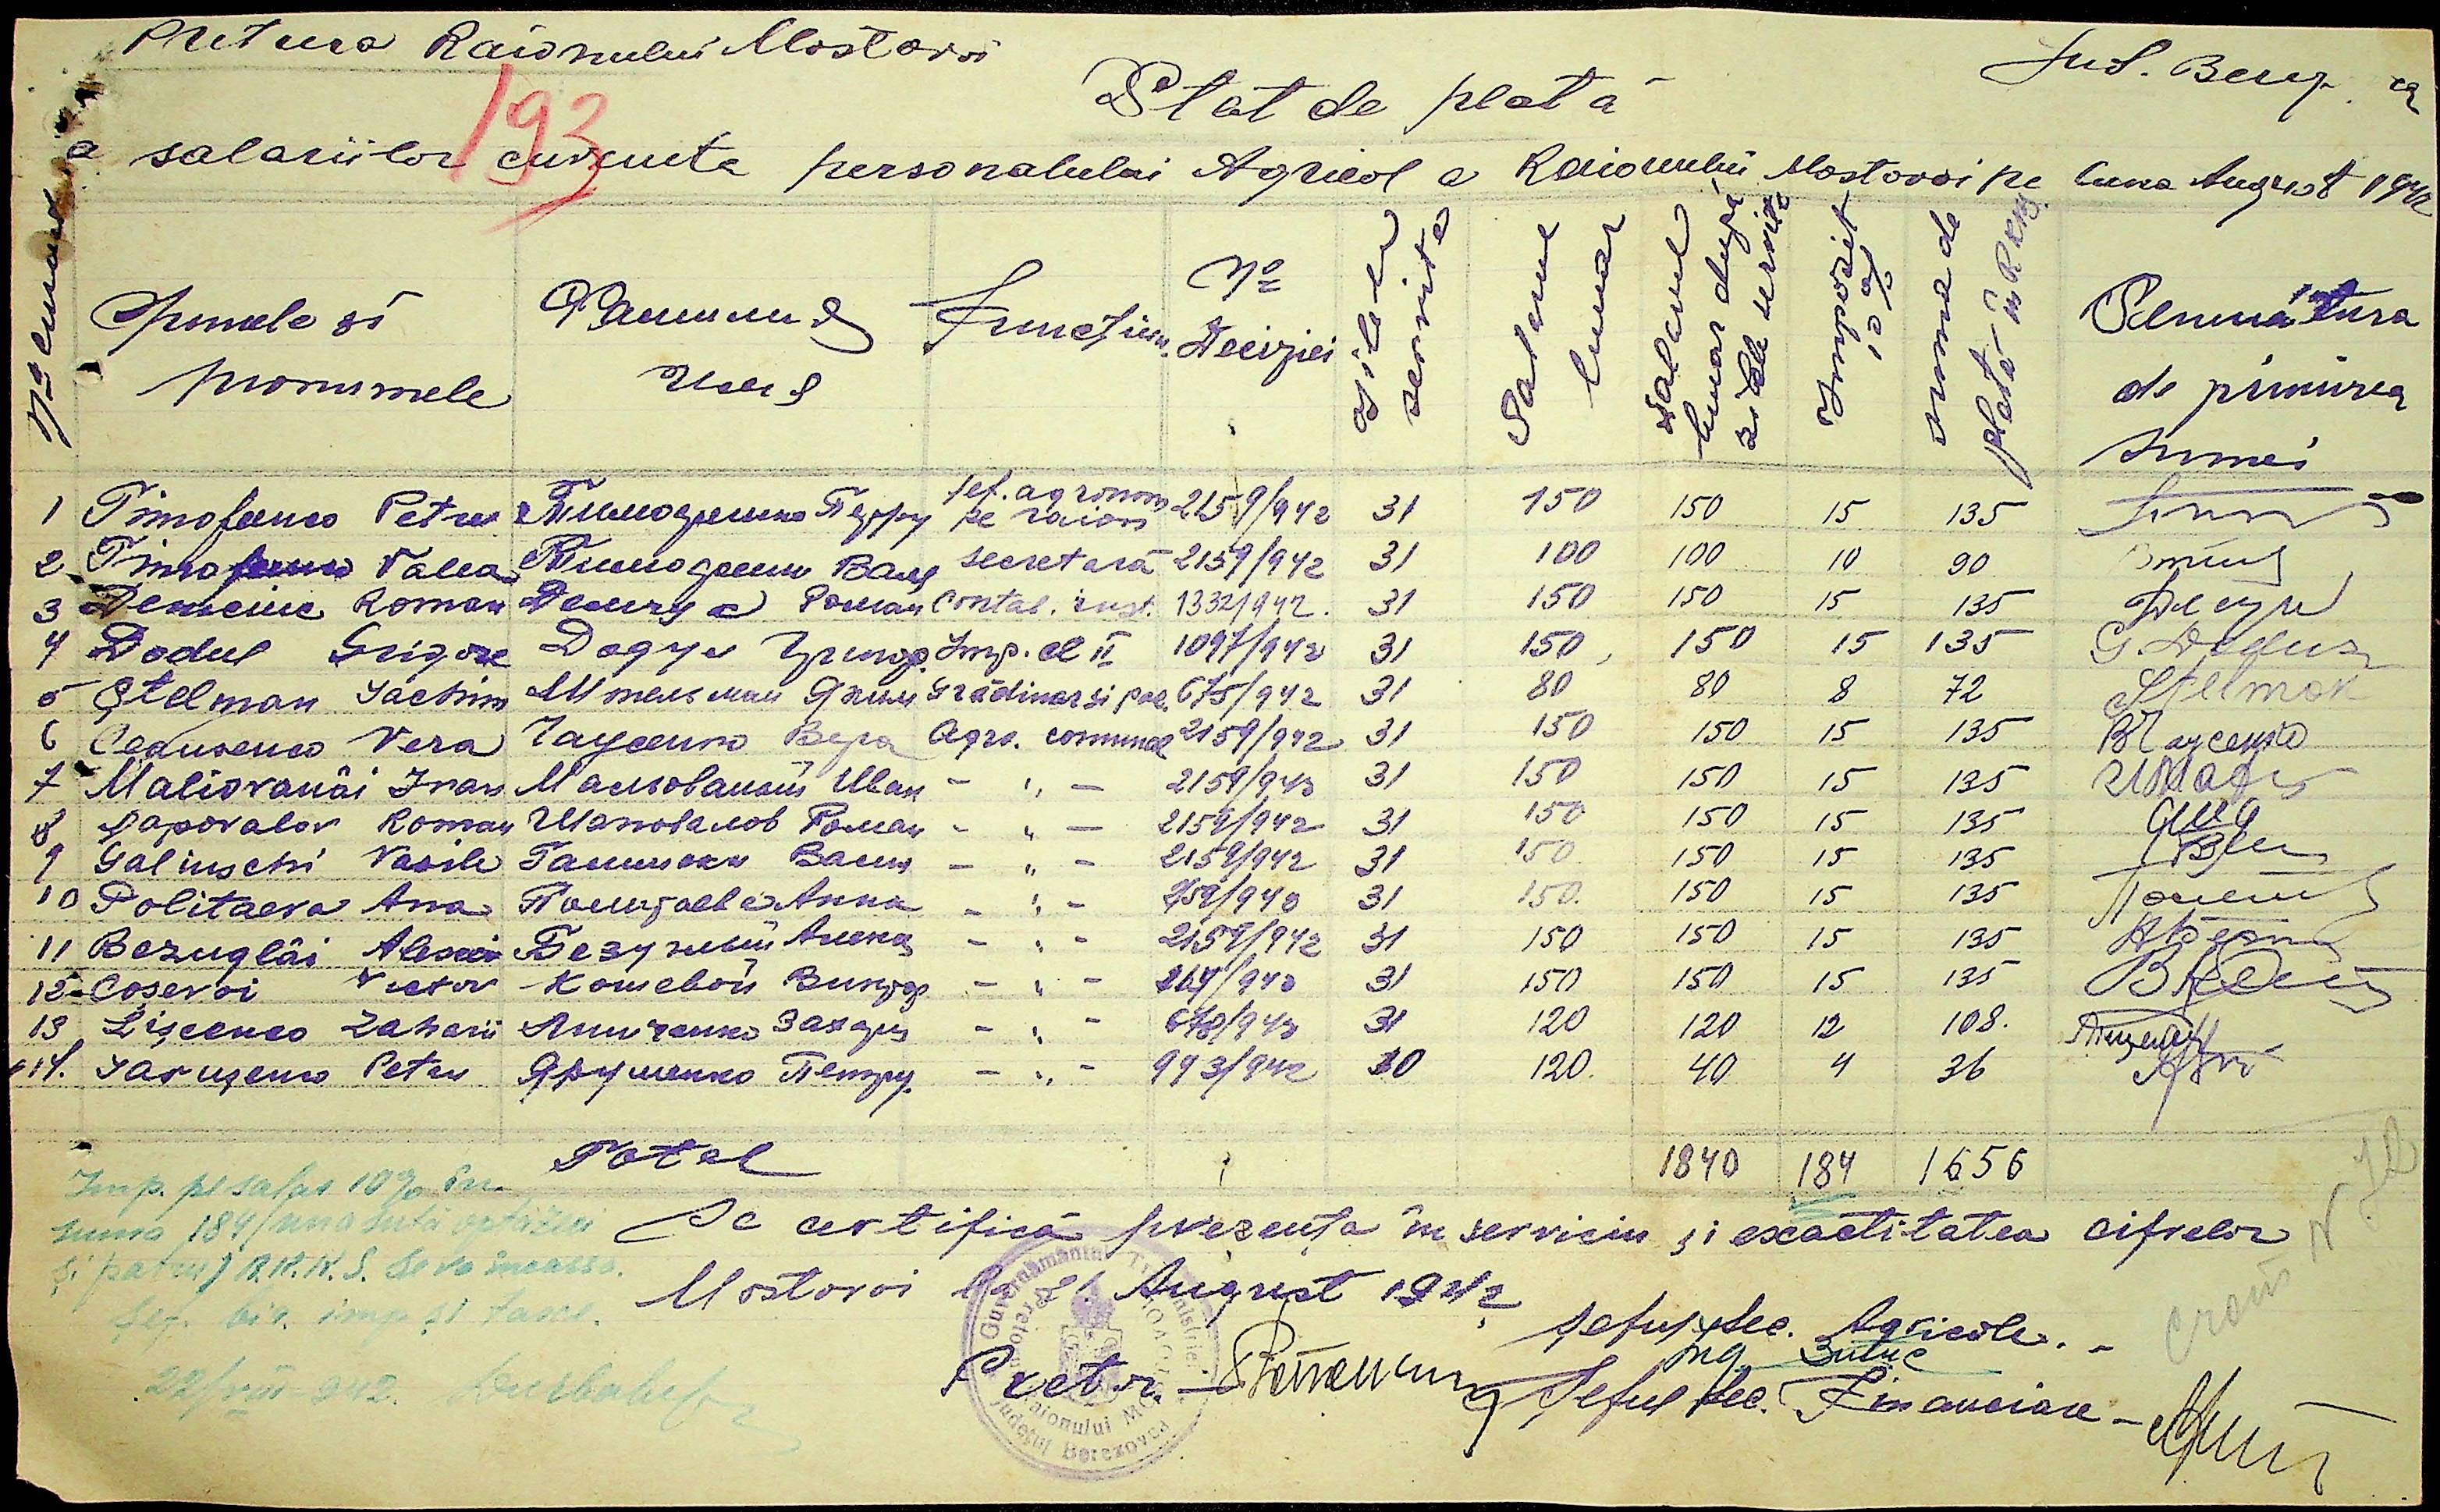 Pretura Raionului Mostovoi
Jud. Berez.
193
Stat de plată
a salariilor cuvenite personalului Agricol a Raionului Mostovoi pe luna August 1942
No curent
Numele și pronumele
Фамилия Имя
Funcțiun.
No Deciziei
Zilele servite
Salariul lunar
Salariul lunar după zilele servite
Impozit 10%
Suma de plată în RKKS
Semnătura de primirea sumei
1 Timofeenco Petru Тимофеенко Петру șef. agronom pe raion 2159/942 31 150 150 15 135
2 Timofeenco Valea Тимофеенко Валя secretară 2159/942 31 100 100 10 90
3 Demciuc Roman Демчук Роман Contab. inst. 1332/942. 31 150 150 15 135
4 Dodul Grigore Додул Григор. Imp. cl II 1097/942 31 150 150 15 135 G. Dodul
5 Ștelman Iachim Штельман Яким Grădinar și pac. 675/942 31 80 80 8 72
6 Ceausenco Vera Чаусенко Вера Agro. comunal 2159/942 31 150 150 15 135 В Чаусенко
7 Maliovanâi Ivan Мальованый Иван - " - 2159/942 31 150 150 15 135
8 Șapovalov Roman Шаповалов Роман - " - 2159/942 31 150 150 15 135
9 Galinschi Vasile Галински Васил - " - 2159/942 31 150 150 15 135
10 Politaeva Ana Политаева Анна - " - 2159/942 31 150. 150 15 135
11 Bezuglâi Alexei Безуглый Алекс - " - 2159/942 31 150 150 15 135
12 Coșevoi Victor Кошевой Виктор - " - 31 150 150 15 135
13 Lișcenco Zaharii Лищенко Захари - " - 678/942 31 120 120 12 108.
14. Iarușenco Petru Ярушенко Петру. - " - 993/942 10 120. 40 4 36
Total 1840 184 1656
Imp. pe salar 10% în
suma 184 (una sută optzeci
și patru) R.K.K.S. se va încasa.
Șef. bir. imp. și taxe.
22/VIII-942.
Se certifică prezența în serviciu și exactitatea cifrelor
Mostovoi la 21 August 1942
Șeful Sec. Agricole. -
Ing.
Pretor. -
Șeful Sec. Financiare -
Guvernământul Transnistriei
Pretori Raionului MOSTOVOI
Județul Berezovca